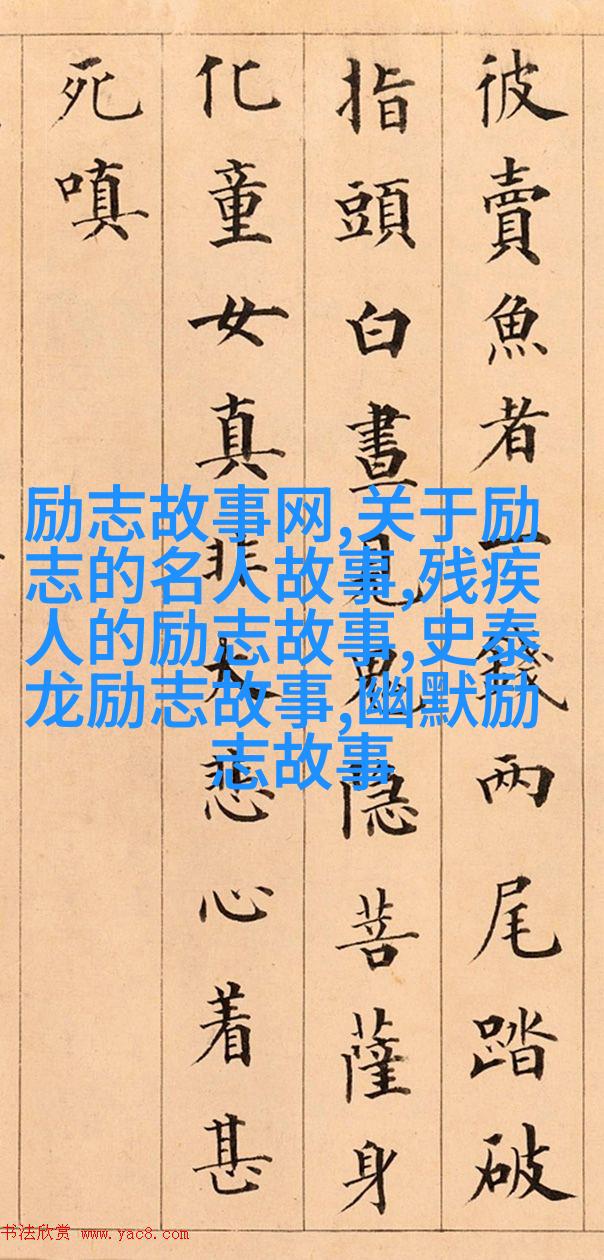 彼賣魚者一錢两尾踏破
指頭白晝見鬼隐菩薩身
化童女真非大悲心着甚
死嗔
励志故事网,关于励
志的名人故事,残疾
人的励志故事,史泰
龙励志故事,幽默励
志故事
书法欣赏 www.yac8.com